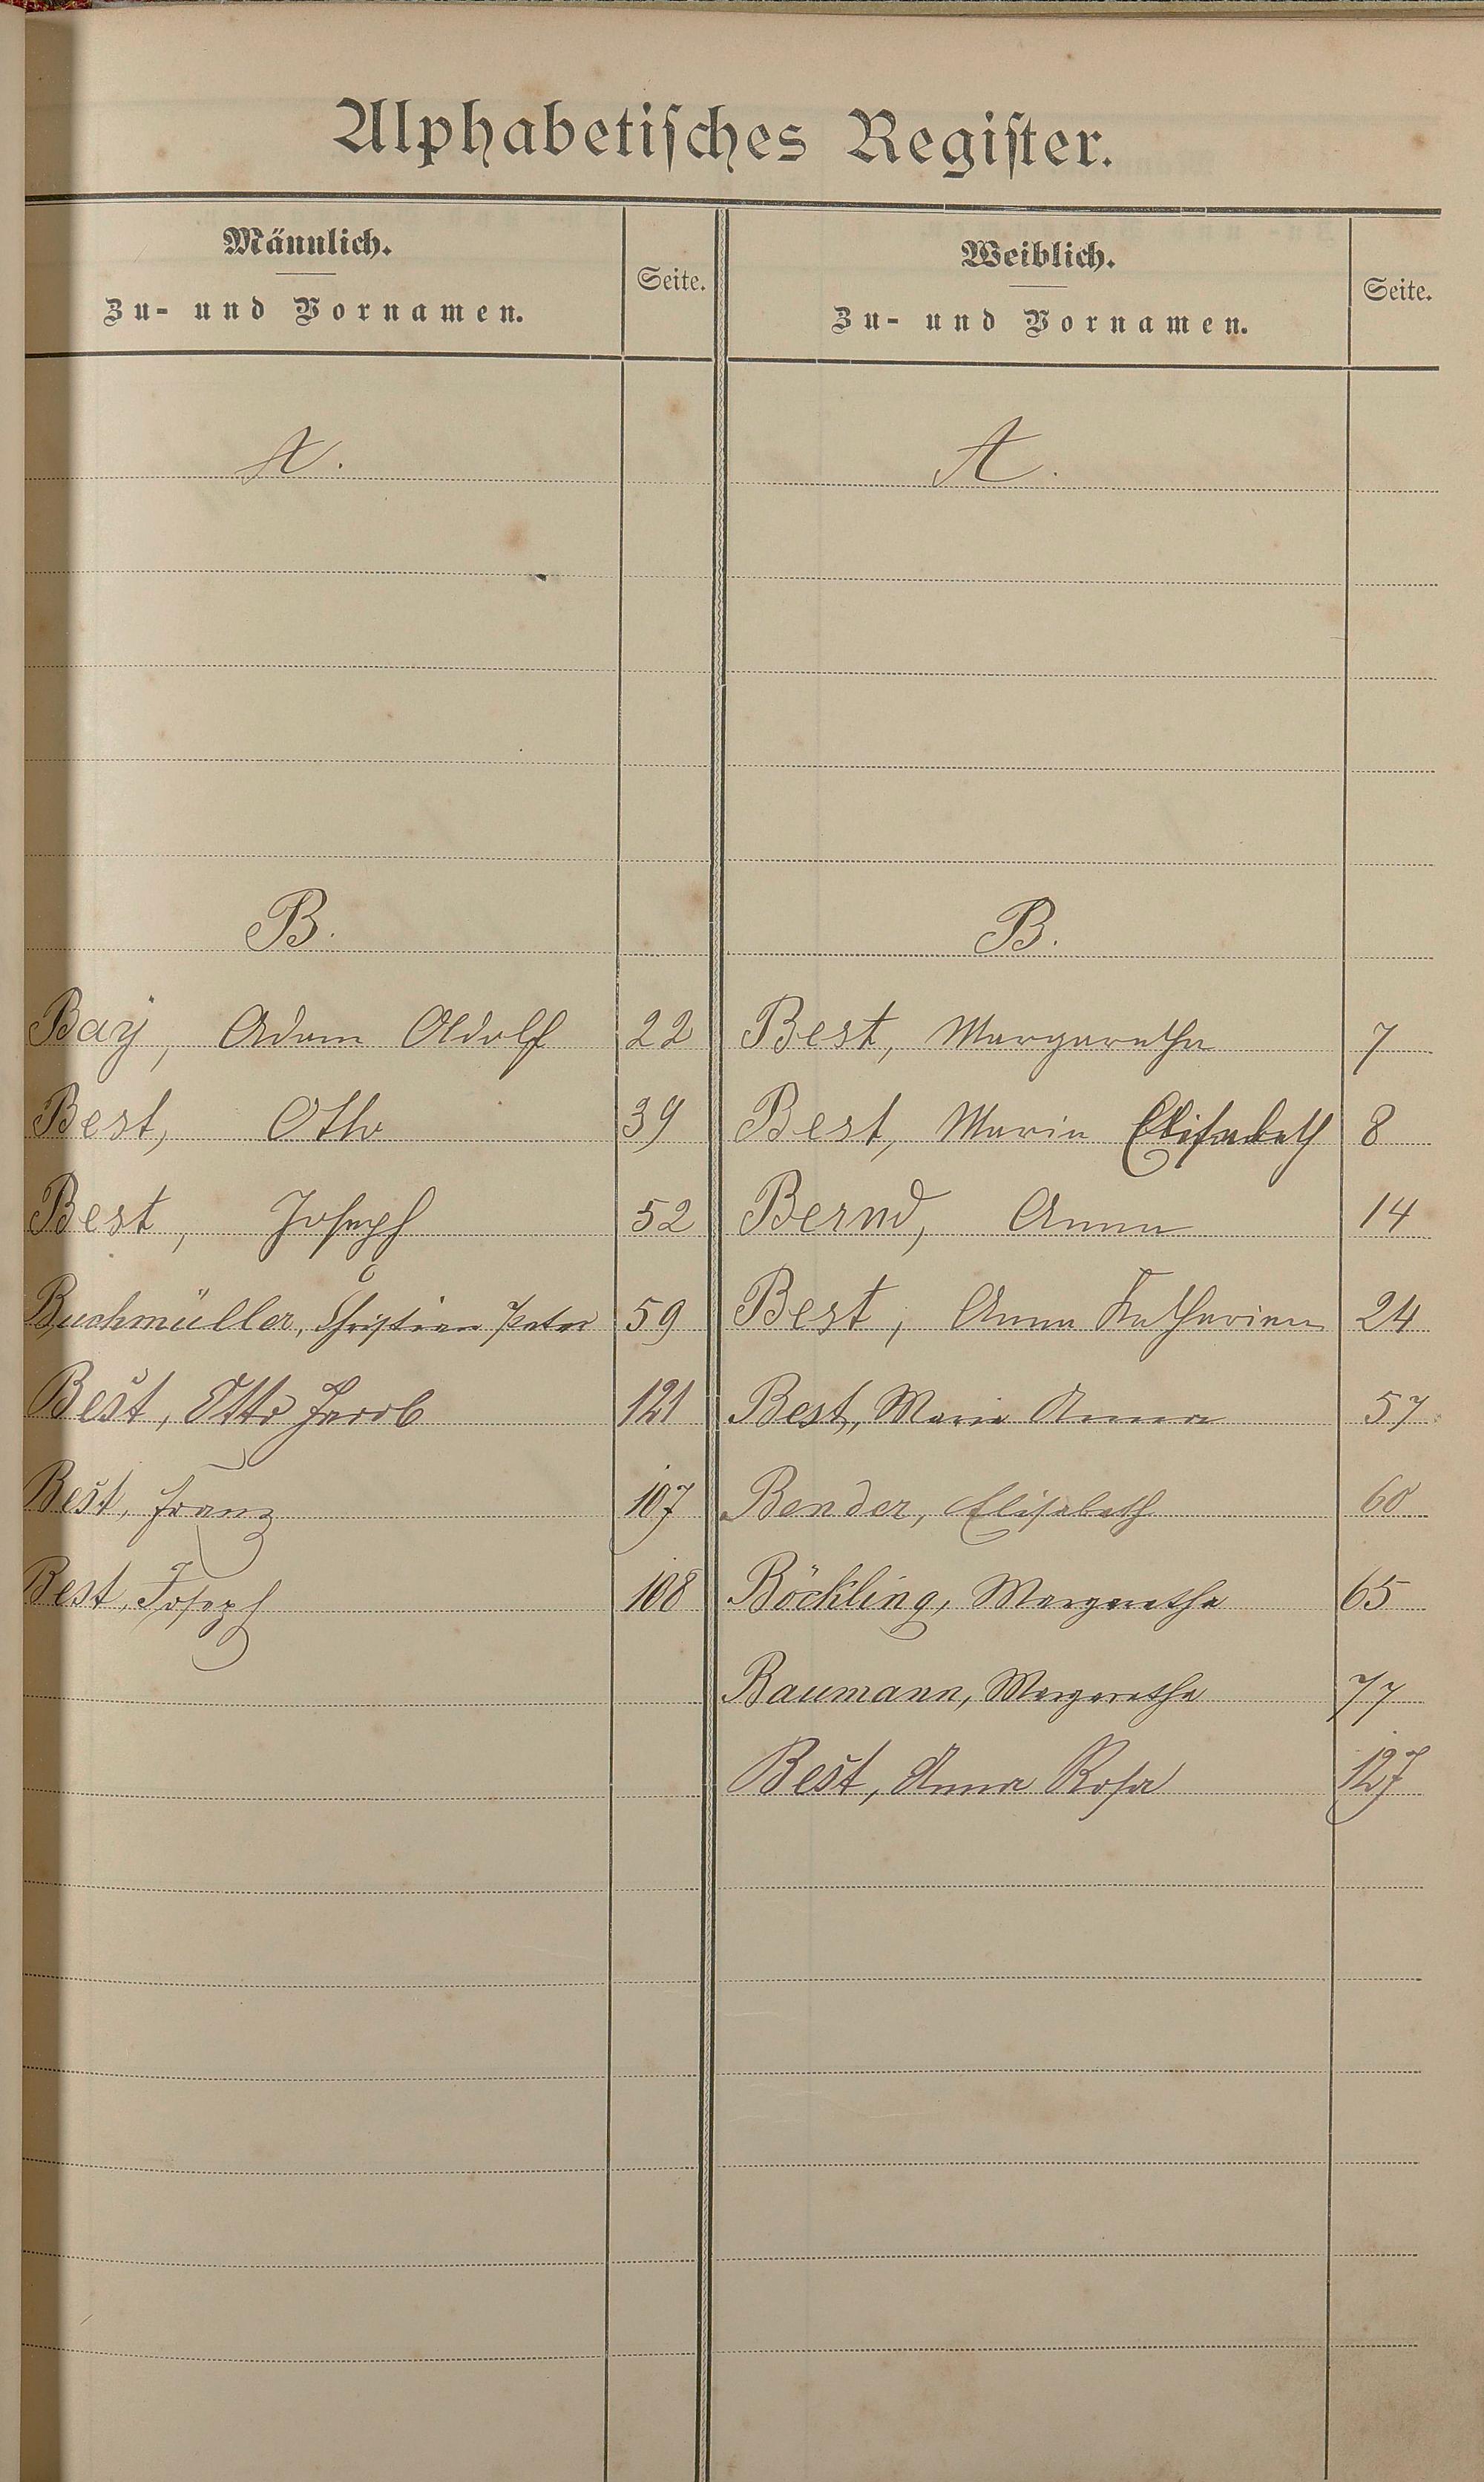 Alphabetisches Register.
Männlich. Weiblich.
Zu- und Vornamen. Seite. Zu- und Vornamen. Seite.
A. A.
B. B.
Bay, Adam Adolf 22 Best, Margaretha 7
Best, Otto 39 Best, Maria Elisabeth 8
Best, Joseph 52 Bernd, Anna 14
Buchmüller, Christian Peter 59 Best, Anna Katharina 24
Best, Otto Jacob 121 Best, Maria Anna 57
Best, Franz 107 Bender, Elisabeth 60
Best, Joseph 108 Böckling, Margaretha 65
Baumann, Margaretha 77
Best, Anna Rosa 127